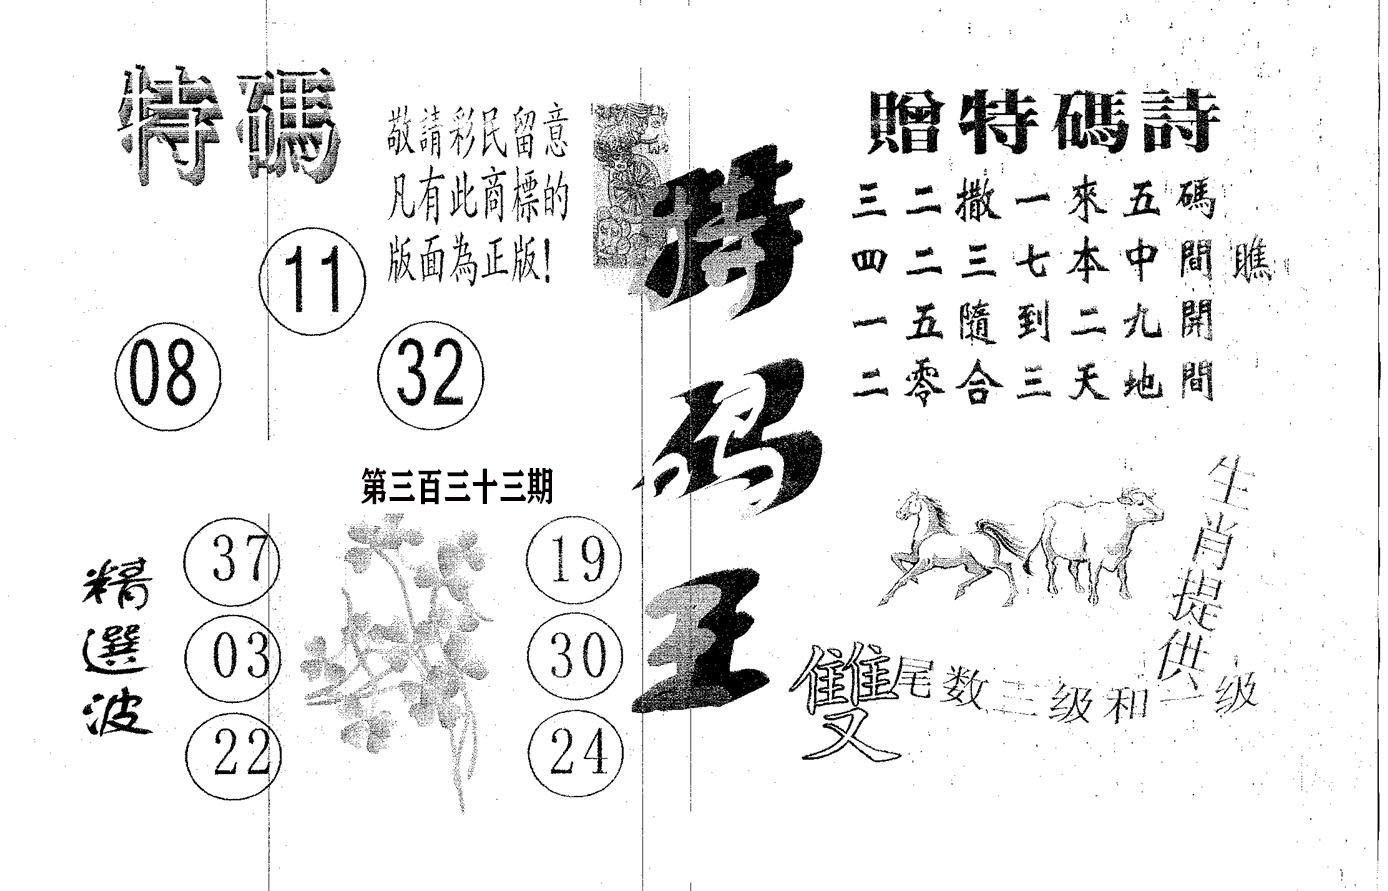 特碼
敬請彩民留意
凡有此商標的
版面為正版!
11
08
32
第三百三十三期
精選波
37
03
22
19
30
24
特码王
贈特碼詩
三二撒一來五碼
四二三七本中間瞧
一五隨到二九開
二零合三天地間
生肖提供
雙尾数二级和一级